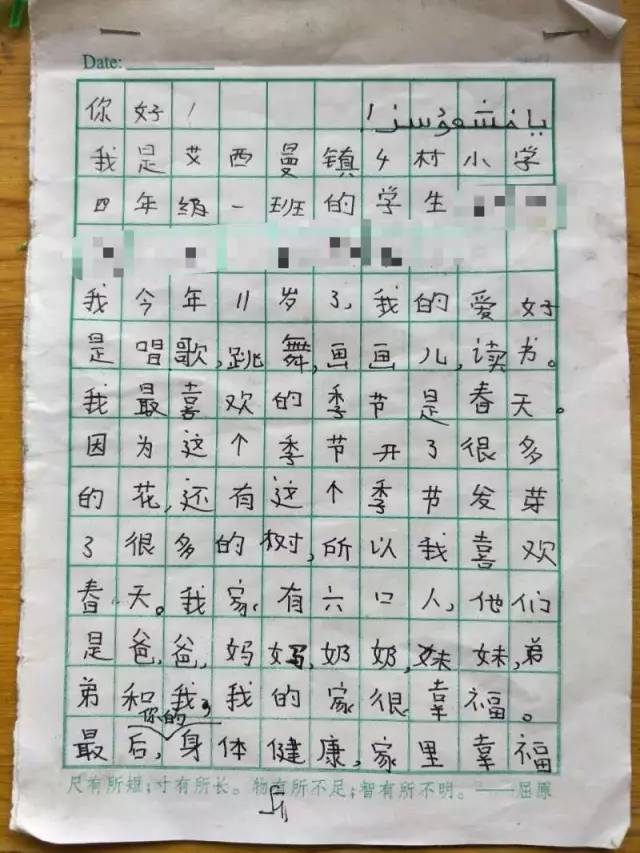 Date:
你好! ياخشىمۇسىز!
我是艾西曼镇4村小学
四年级一班的学生
我今年11岁了,我的爱好
是唱歌,跳舞,画画儿,读书。
我最喜欢的季节是春天。
因为这个季节开了很多
的花,还有这个季节发芽
了很多的树,所以我喜欢
春天。我家有六口人,他们
是爸,爸,妈妈,奶奶,妹妹,弟
弟和我,我的家很幸福。
最后,你的身体健康,家里幸福
尺有所短;寸有所长。物有所不足;智有所不明。——屈原